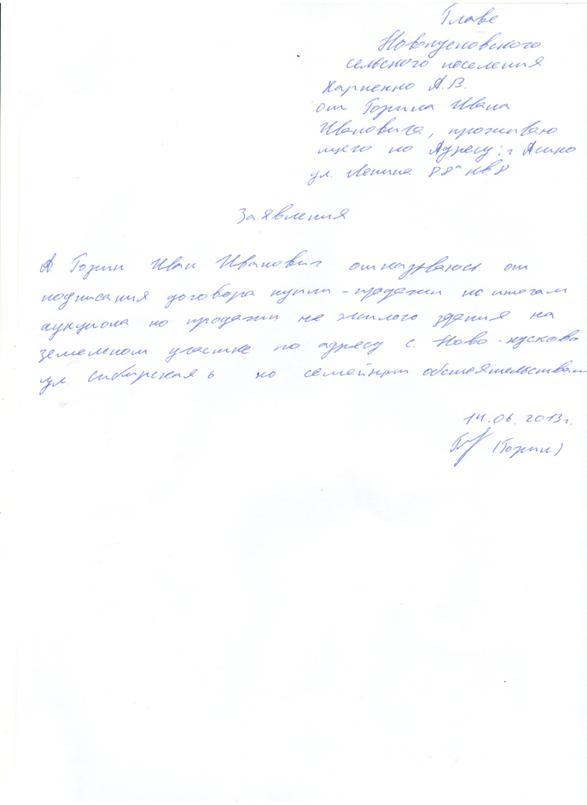 Главе
Новокусковского
сельского поселения
Карпенко А.В.
от Горина Ивана
Ивановича, проживаю
щего по Адресу: г Асино
ул. Ленина 88а кв 8
Заявления
Я Горин Иван Иванович отказываюсь от
подписания договора купли-продажи по итогам
аукциона по продажи не жилого здания на
земельном участке по адресу с. Ново-кусково
ул Сибирская 6 по семейным обстоятельствам
14.06.2013г.
(Горин)